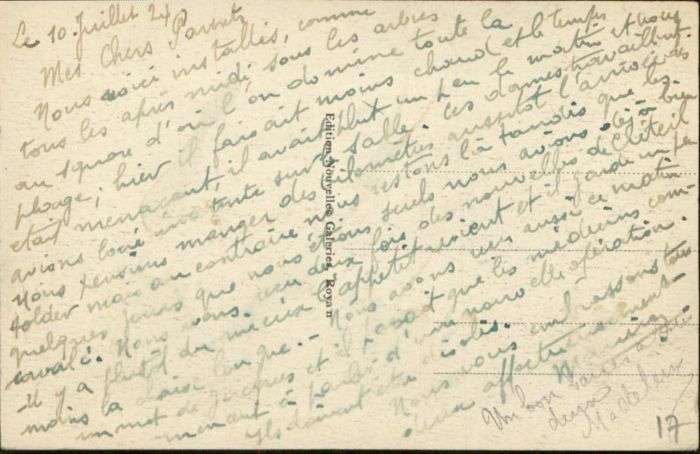 Le 10 Juillet 24
Mes Chers Parents
Nous voici installés, comme
tous les après midi sous les arbres
au square d'où l'on domine toute la
plage; hier il faisait moins chaud et le temps
était menaçant, il avait plut un peu le matin et nous
avions loué une tente sur le sable, ces dames travaillent
Nous venions manger des kilomètres aussitôt l'arrivée des
folder mais au contraire nous restons là tandis que les
quelques jours que nous étions seuls nous avions déjà bien
cavalé. Nous avons eu deux fois des nouvelles de
il y a plutôt du mieux l'appétit revient et il garde un peu
moins la chaise longue. - Nous avons vers aussi ce matin
un mot de Jacques et il parait que les médecins com-
mencent à parler d'une nouvelle opération.
Ils doivent être désolés.
Nous vous embrassons tous
deux affectueusement
Un bon baiser à vous
deux
Madeleine
17
Edition Nouvelles Galeries, Royan